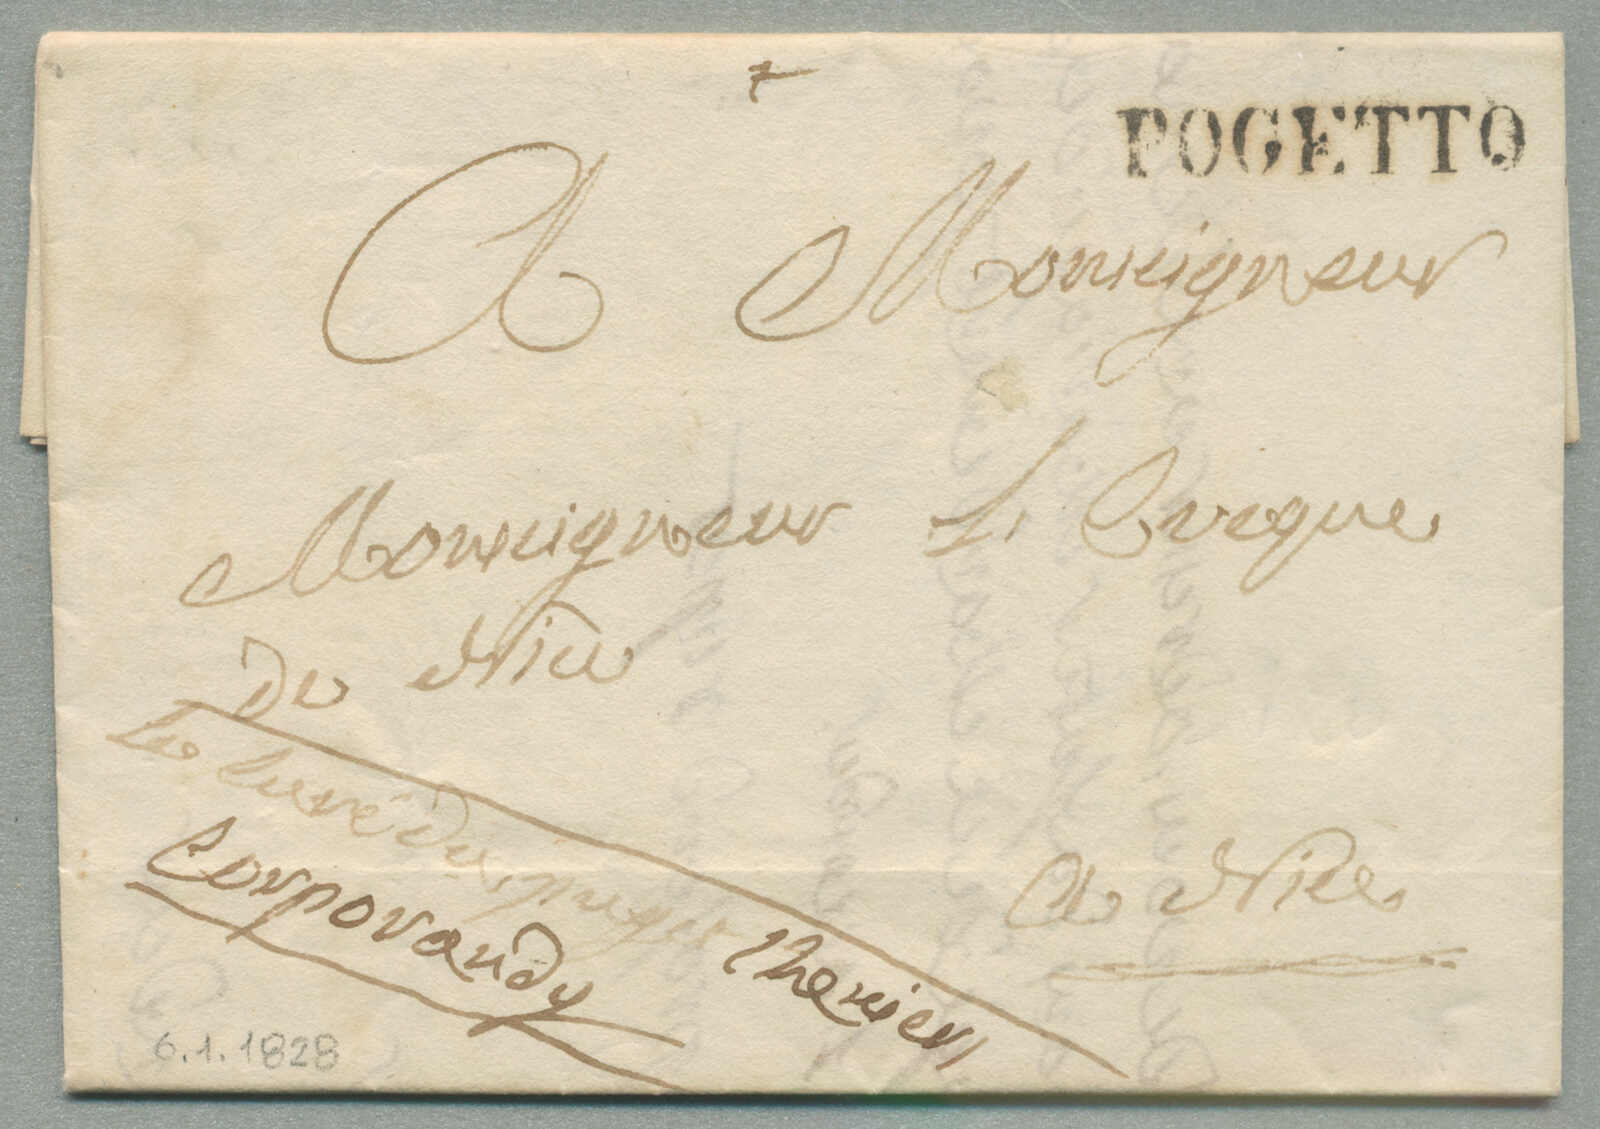 7
POGETTO
A Monseigneur
Monseigneur L'Eveque
De Nice
Le Curé du puget Theniers
Corporandy
A Nice
6.1.1828